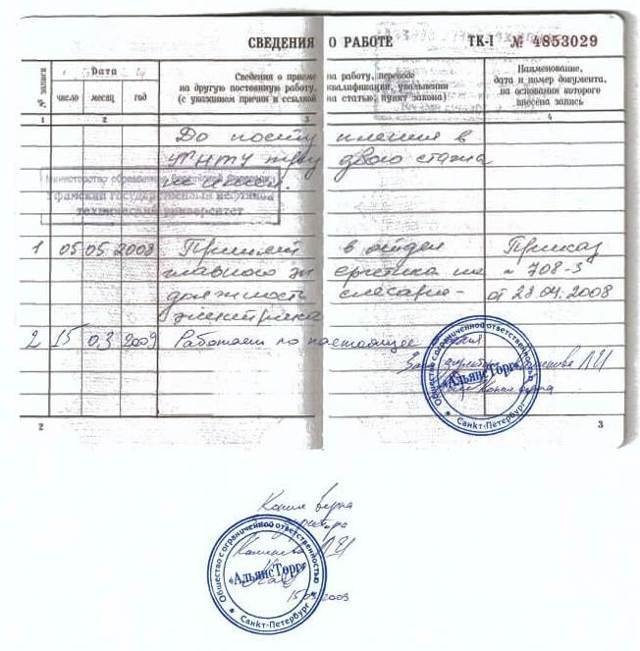 СВЕДЕНИЯ О РАБОТЕ ТК-I № 4853029
№ записи
Дата
число месяц год
Сведения о приеме на работу, переводе
на другую постоянную работу, квалификации, увольнении
(с указанием причин и ссылкой на статью, пункт закона)
Наименование,
дата и номер документа,
на основании которого
внесена запись
1 2 3 4
До поступления в
УГНТУ трудового стажа
не имеет.
Министерство образования Российской Федерации
Уфимский государственный нефтяной
технический университет
1 05 05 2008 Принят в отдел Приказ
главного энергетика на № 708-3
должность слесаря- от 28.04.2008
электрика
2 15 03 2009 Работает по настоящее время
Общество с ограниченной ответственностью
«АльянсТорг»
Санкт-Петербург
2 3
Копия верна
Общество с ограниченной ответственностью
«АльянсТорг»
15.03.2009
Санкт-Петербург